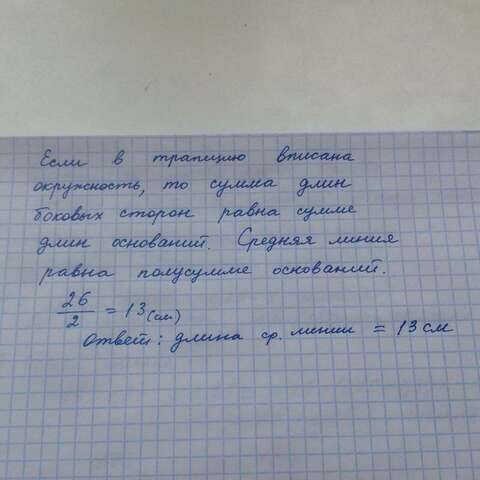 Если в трапецию вписана
окружность, то сумма длин
боковых сторон равна сумме
длин оснований. Средняя линия
равна полусумме оснований.
26/2 = 13 (см)
Ответ: длина ср. линии = 13 см